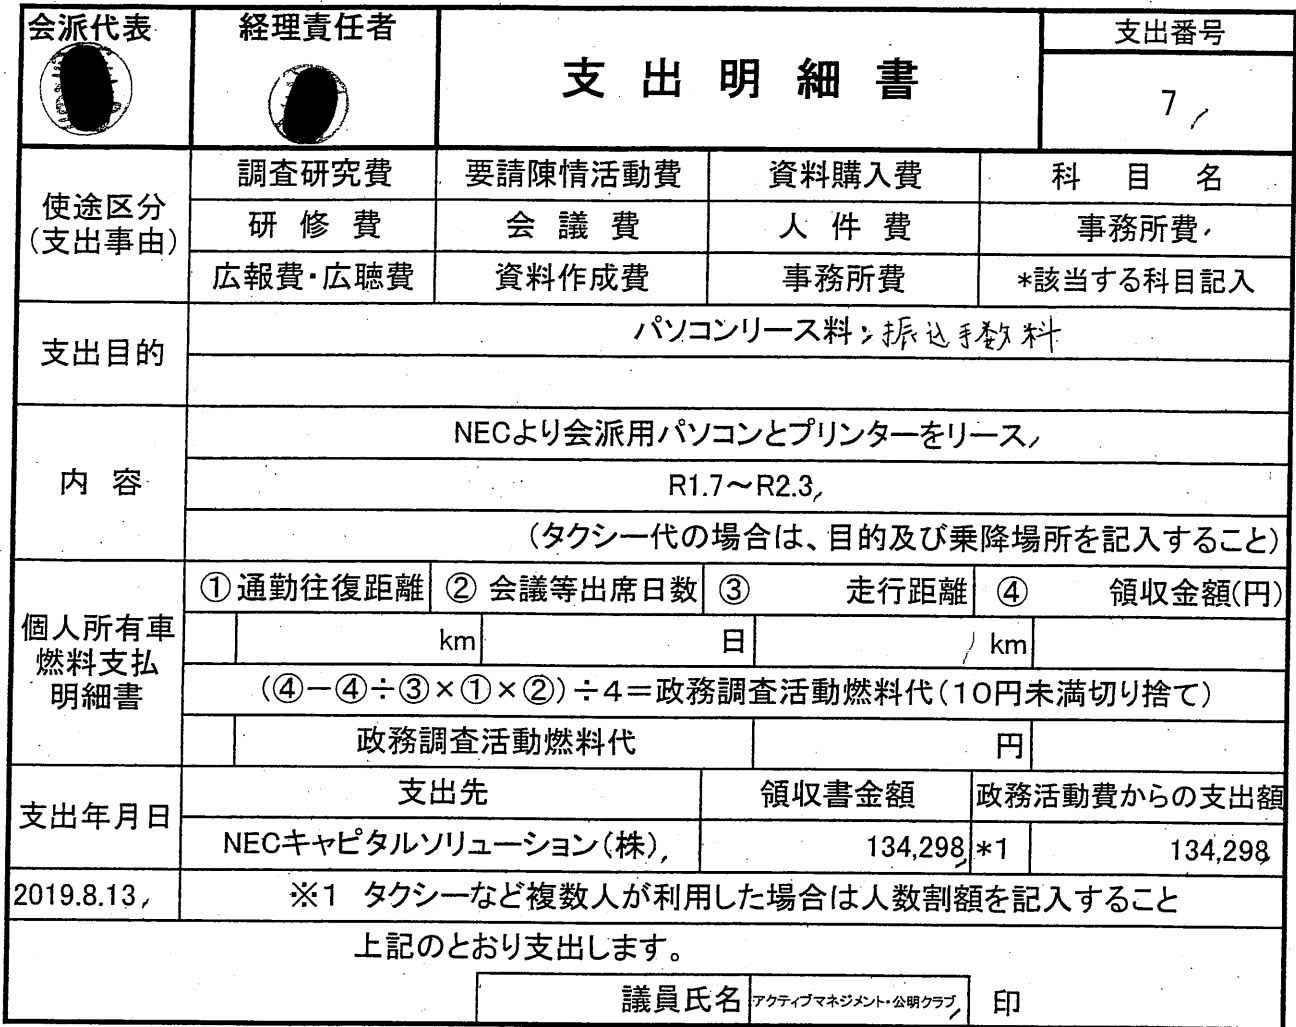 会派代表 経理責任者 支出明細書 支出番号
7
使途区分
(支出事由)
調査研究費 要請陳情活動費 資料購入費 科目名
研修費 会議費 人件費 事務所費
広報費・広聴費 資料作成費 事務所費 *該当する科目記入
支出目的
パソコンリース料 振込手数料
内容
NECより会派用パソコンとプリンターをリース
R1.7～R2.3
(タクシー代の場合は、目的及び乗降場所を記入すること)
個人所有車
燃料支払
明細書
①通勤往復距離 ②会議等出席日数 ③走行距離 ④領収金額(円)
km 日 km
(④－④÷③×①×②)÷4＝政務調査活動燃料代(10円未満切り捨て)
政務調査活動燃料代 円
支出年月日 支出先 領収書金額 政務活動費からの支出額
NECキャピタルソリューション(株) 134,298 *1 134,298
2019.8.13 ※1 タクシーなど複数人が利用した場合は人数割額を記入すること
上記のとおり支出します。
議員氏名 アクティブマネジメント・公明クラブ 印